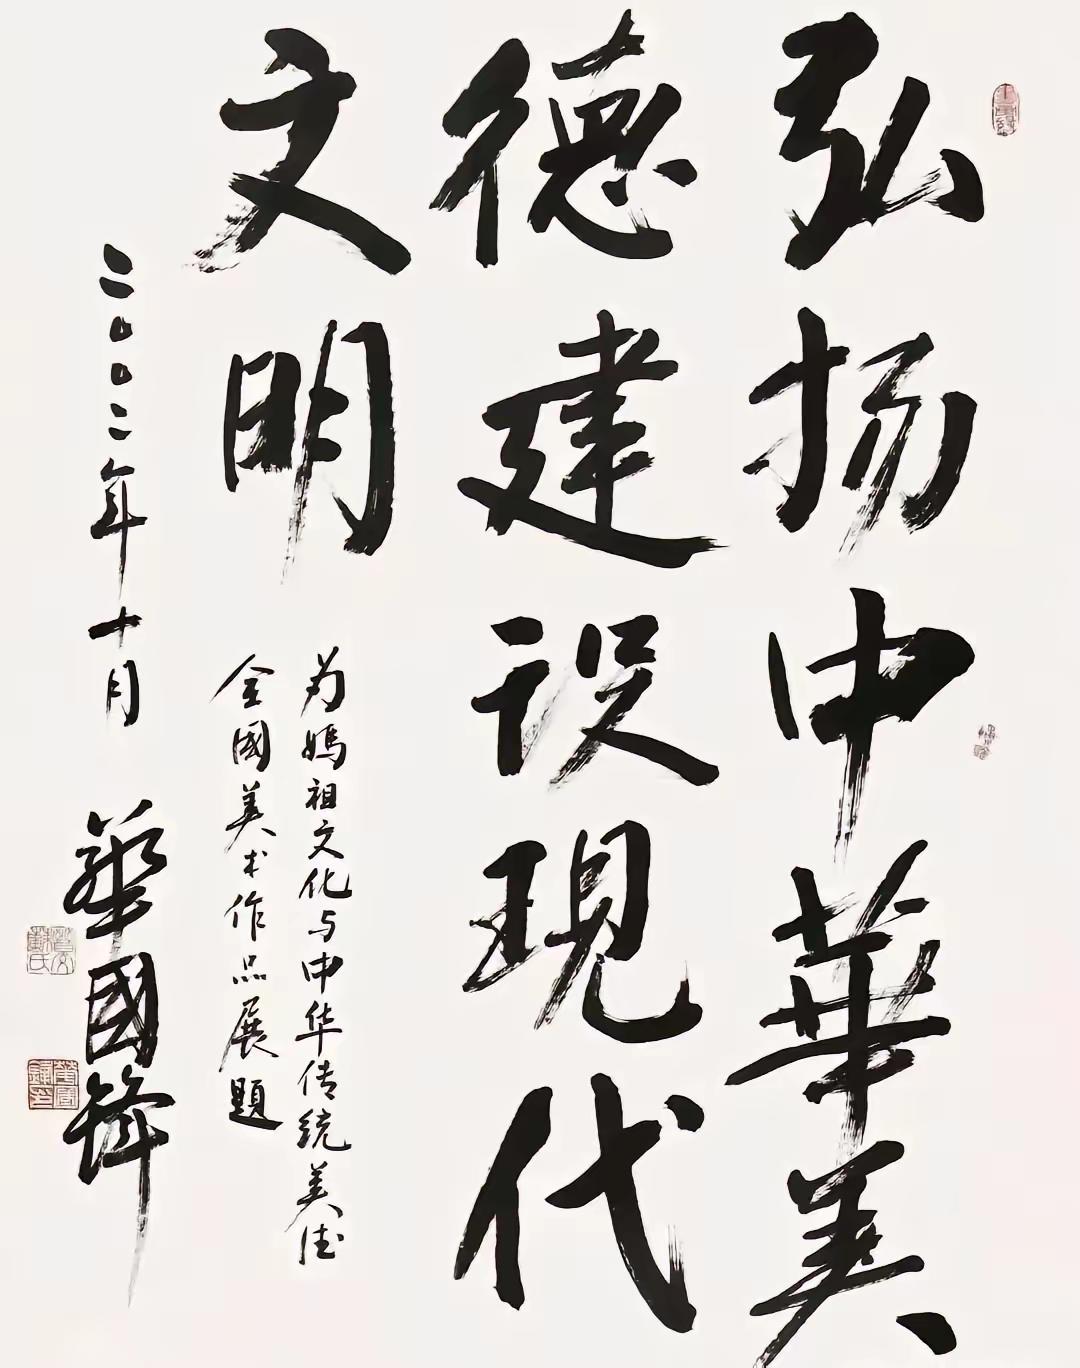 弘扬中華美
德建设現代
文明
为媽祖文化与中华传统美德
全國美术作品展題
二〇〇二年十月
華國鋒